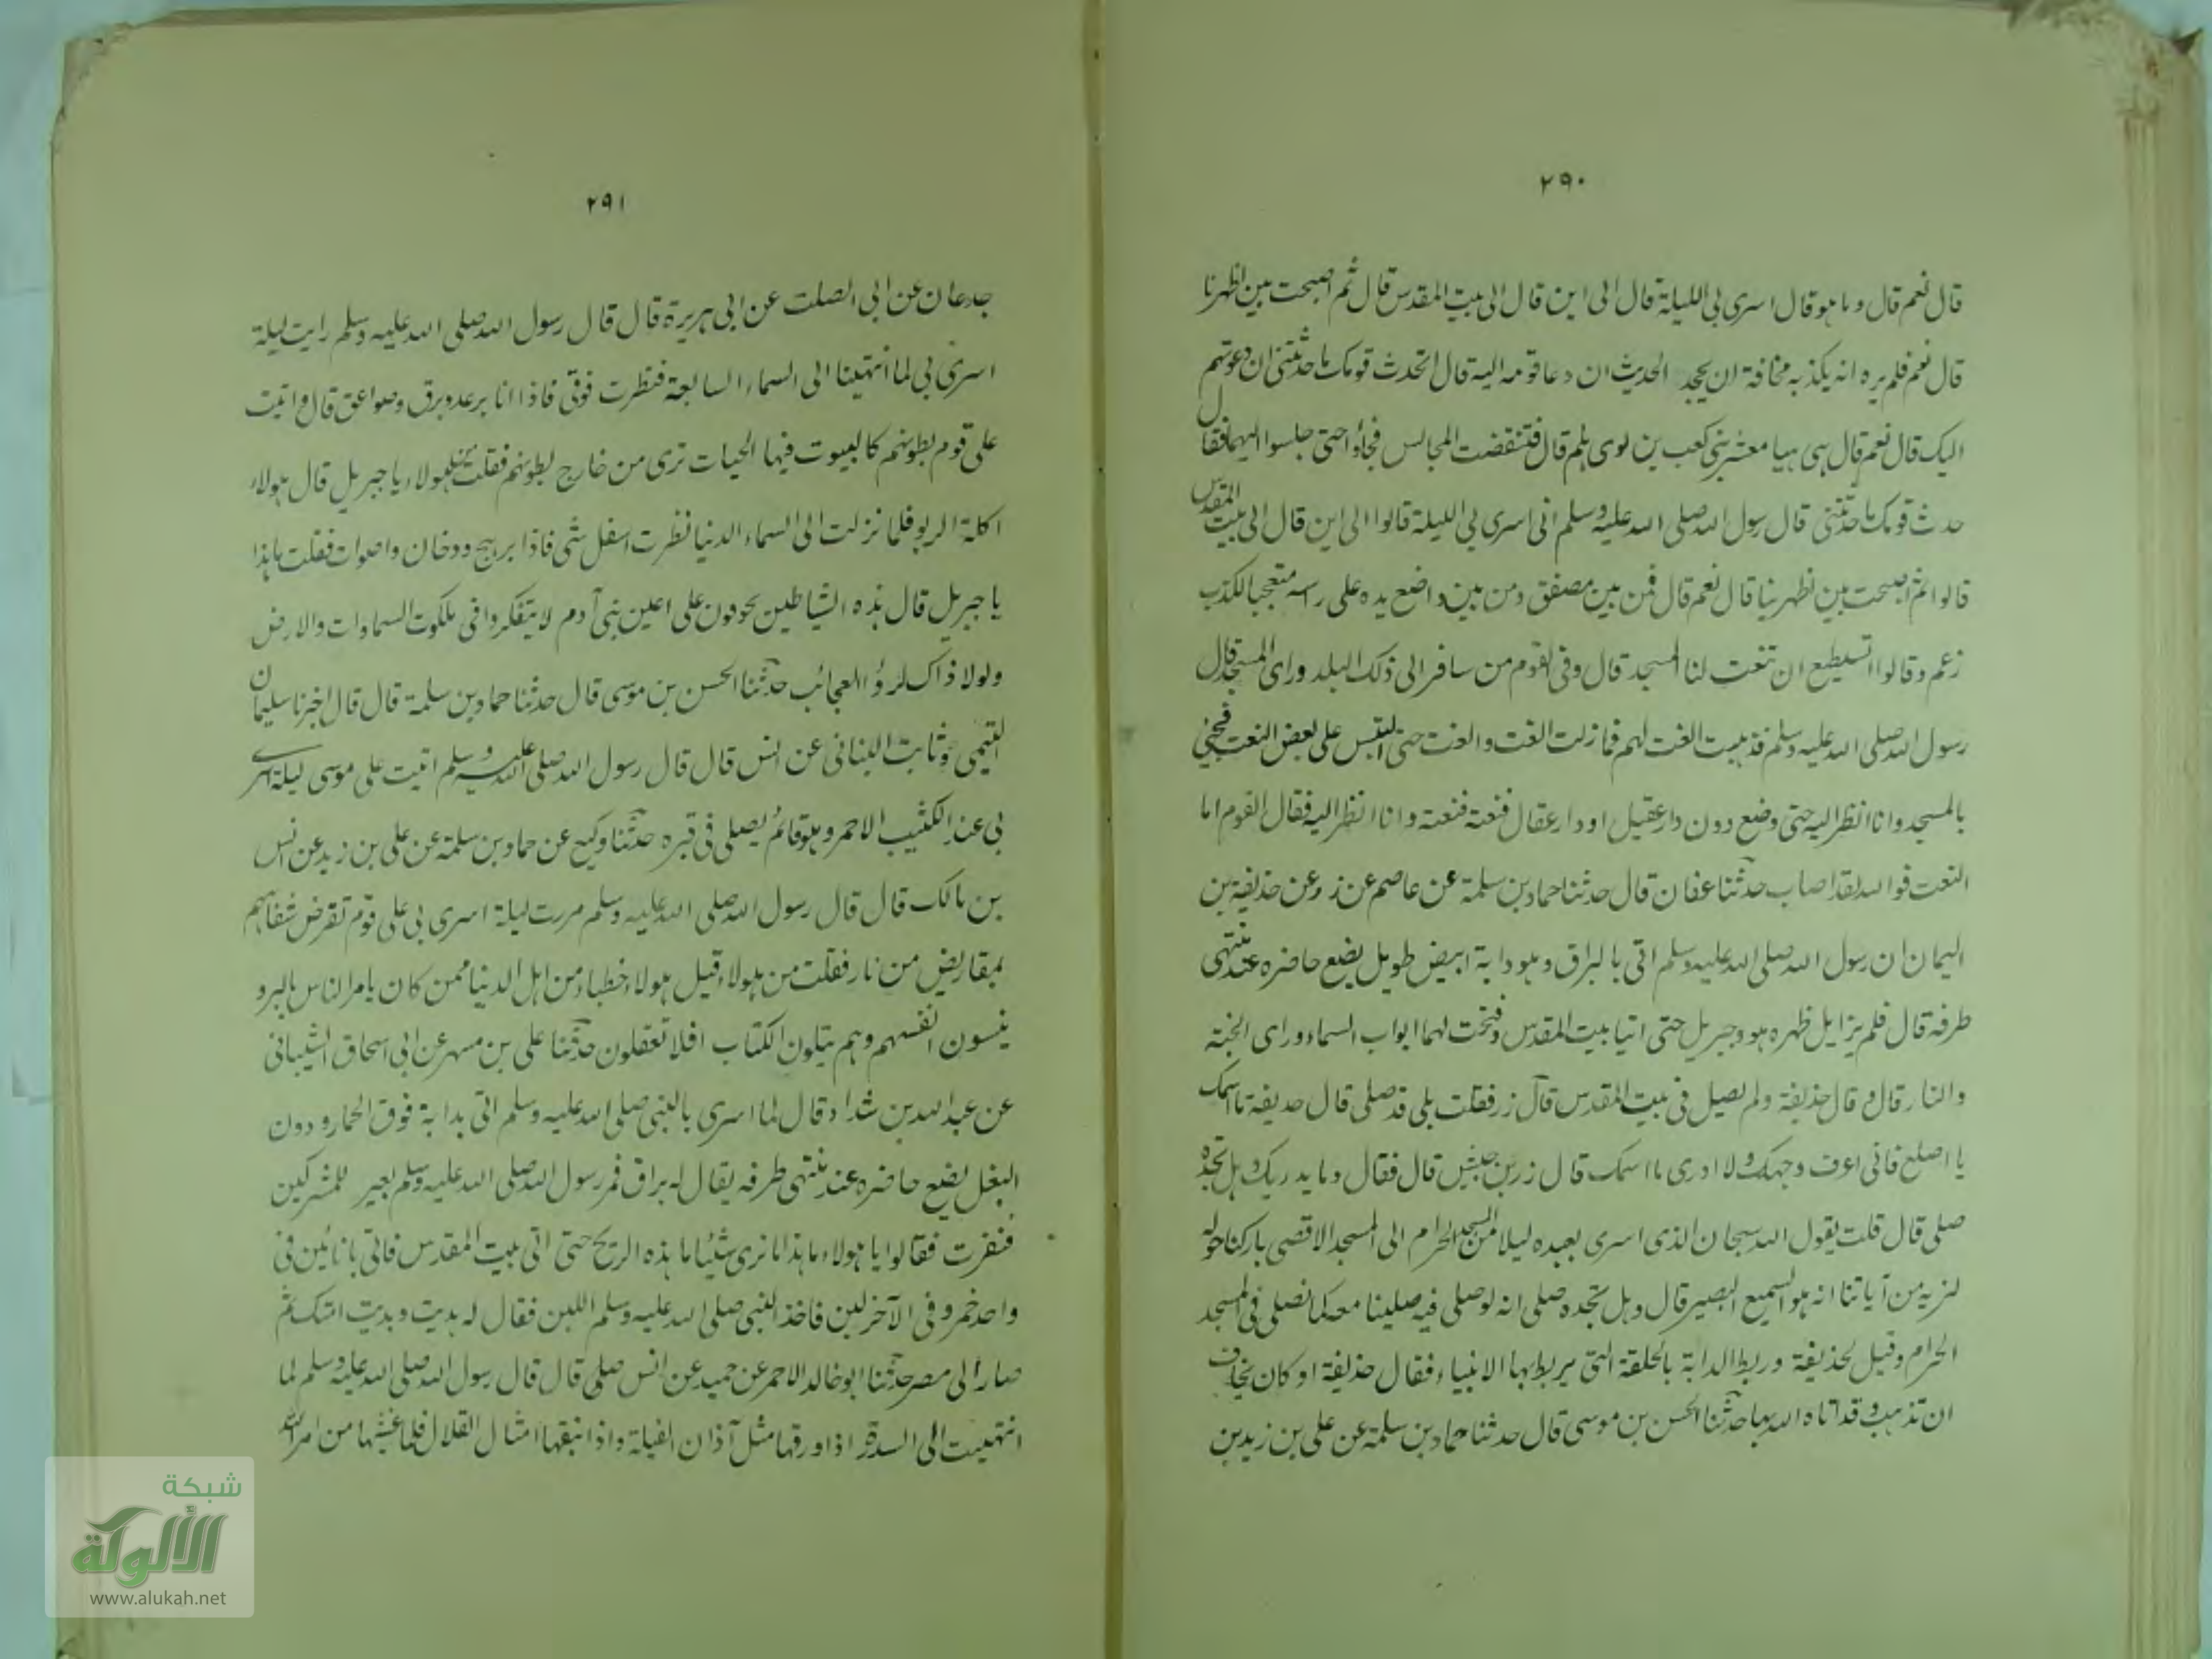 ٢٩٠
قال نعم قال وما هو قال اسرى بي الليلة قال الى اين قال الى بيت المقدس قال ثم اصبحت بين اظهرنا
قال نعم فلم يره انه يكذبه مخافة ان يجحد الحديث ان دعا قومه اليه قال اتحدث قومك ما حدثتني ان دعوتهم
اليك قال نعم قال هيا معشر بني كعب بن لوى هلم قال فتنقضت المجالس فجاؤا حتى جلسوا اليهما فقال
حدث قومك ما حدثتني قال رسول الله صلى الله عليه وسلم انى اسرى بي الليلة قالوا الى اين قال الى بيت المقدس
قالوا ثم اصبحت بين ظهرينا قال نعم قال فمن بين مصفق ومن بين واضع يده على راسه متعجبا لكذب
زعم وقالوا اتستطيع ان تنعت لنا المسجد قال وفي القوم من سافر الى ذلك البلد وراى المسجد قال
رسول الله صلى الله عليه وسلم فذهبت انعت لهم فما زلت انعت وانعت حتى التبس على بعض النعت فجئ
بالمسجد وانا انظر اليه حتى وضع دون دار عقيل او دار عقال فنعته فنعته وانا انظر اليه فقال القوم اما
النعت فوالله لقد اصاب حدثنا عفان قال حدثنا حماد بن سلمة عن عاصم عن زر عن حذيفة بن
اليمان ان رسول الله صلى الله عليه وسلم اتى بالبراق وهو دابة ابيض طويل يضع حافره عند منتهى
طرفه قال فلم يزايل ظهره هو وجبريل حتى اتيا بيت المقدس وفتحت لهما ابواب السماء وراى الجنة
والنار قال وقال حذيفة ولم يصل في بيت المقدس قال زر فقلت بلى قد صلى قال حذيفة ما اسمك
يا اصلع فانى اعرف وجهك ولا ادرى ما اسمك قال زر بن حبيش قال فقال وما يدريك وهل تجده
صلى قال قلت يقول الله سبحان الذى اسرى بعبده ليلا من المسجد الحرام الى المسجد الاقصى باركنا حوله
لنريه من آياتنا انه هو السميع البصير قال وهل تجده صلى انه لو صلى فيه صلينا معه كما نصلى في المسجد
الحرام وقيل لحذيفة وربط الدابة بالحلقة التى يربط بها الانبياء فقال حذيفة او كان يخاف
ان تذهب وقد اتاه الله بها حدثنا الحسن بن موسى قال حدثنا حماد بن سلمة عن على بن زيد بن
٢٩١
جدعان عن ابى الصلت عن ابى هريرة قال قال رسول الله صلى الله عليه وسلم رايت ليلة
اسرى بي لما انتهينا الى السماء السابعة فنظرت فوقى فاذا انا برعد وبرق وصواعق قال واتيت
على قوم بطونهم كالبيوت فيها الحيات ترى من خارج بطونهم فقلت من هولاء يا جبريل قال هولاء
اكلة الربو فلما نزلت الى السماء الدنيا نظرت اسفل شى فاذا برهج ودخان واصوات فقلت ما هذا
يا جبريل قال هذه الشياطين يحومون على اعين بنى آدم لا يتفكروا في ملكوت السماوات والارض
ولولا ذاك لرؤا العجائب حدثنا الحسن بن موسى قال حدثنا حماد بن سلمة قال قال اخبرنا سليمان
التيمى وثابت البنانى عن انس قال قال رسول الله صلى الله عليه وسلم اتيت على موسى ليلة اسرى
بي عند الكثيب الاحمر وهو قائم يصلى في قبره حدثنا وكيع عن حماد بن سلمة عن على بن زيد عن انس
بن مالك قال قال رسول الله صلى الله عليه وسلم مررت ليلة اسرى بي على قوم تقرض شفاههم
بمقاريض من نار فقلت من هولاء قيل هولاء خطباء من اهل الدنيا ممن كان يامر الناس بالبر و
ينسون انفسهم وهم يتلون الكتاب افلا تعقلون حدثنا على بن مسهر عن ابى اسحاق الشيبانى
عن عبدالله بن شداد قال لما اسرى بالنبى صلى الله عليه وسلم اتى بدابة فوق الحمار ودون
البغل يضع حافره عند منتهى طرفه يقال له براق فمر رسول الله صلى الله عليه وسلم بعير للمشركين
فنفرت فقالوا يا هولاء ما هذا ما نرى شيئا ما هذه الريح حتى اتى بيت المقدس فاتى بانائين في
واحد خمر وفي الآخر لبن فاخذ النبى صلى الله عليه وسلم اللبن فقال له هديت وهديت امتك ثم
صار الى مصر حدثنا ابو خالد الاحمر عن حميد عن انس صلى قال قال رسول الله صلى الله عليه وسلم لما
انتهيت الى السدرة اذا ورقها مثل آذان الفيلة واذا نبقها امثال القلال فلما غشيها من امر الله
شبكة
الألوكة
www.alukah.net